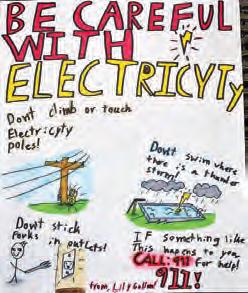 BE CAREFUL
WITH
ELECTRICYTy
Dont climb or touch
Electricpty
poles!
Dont swim where
there is a thunder
storm!
Dont stick
Forks
in outlets!
IF something like
This happens to you
CALL: 911 For help!
911!
from, Lilly